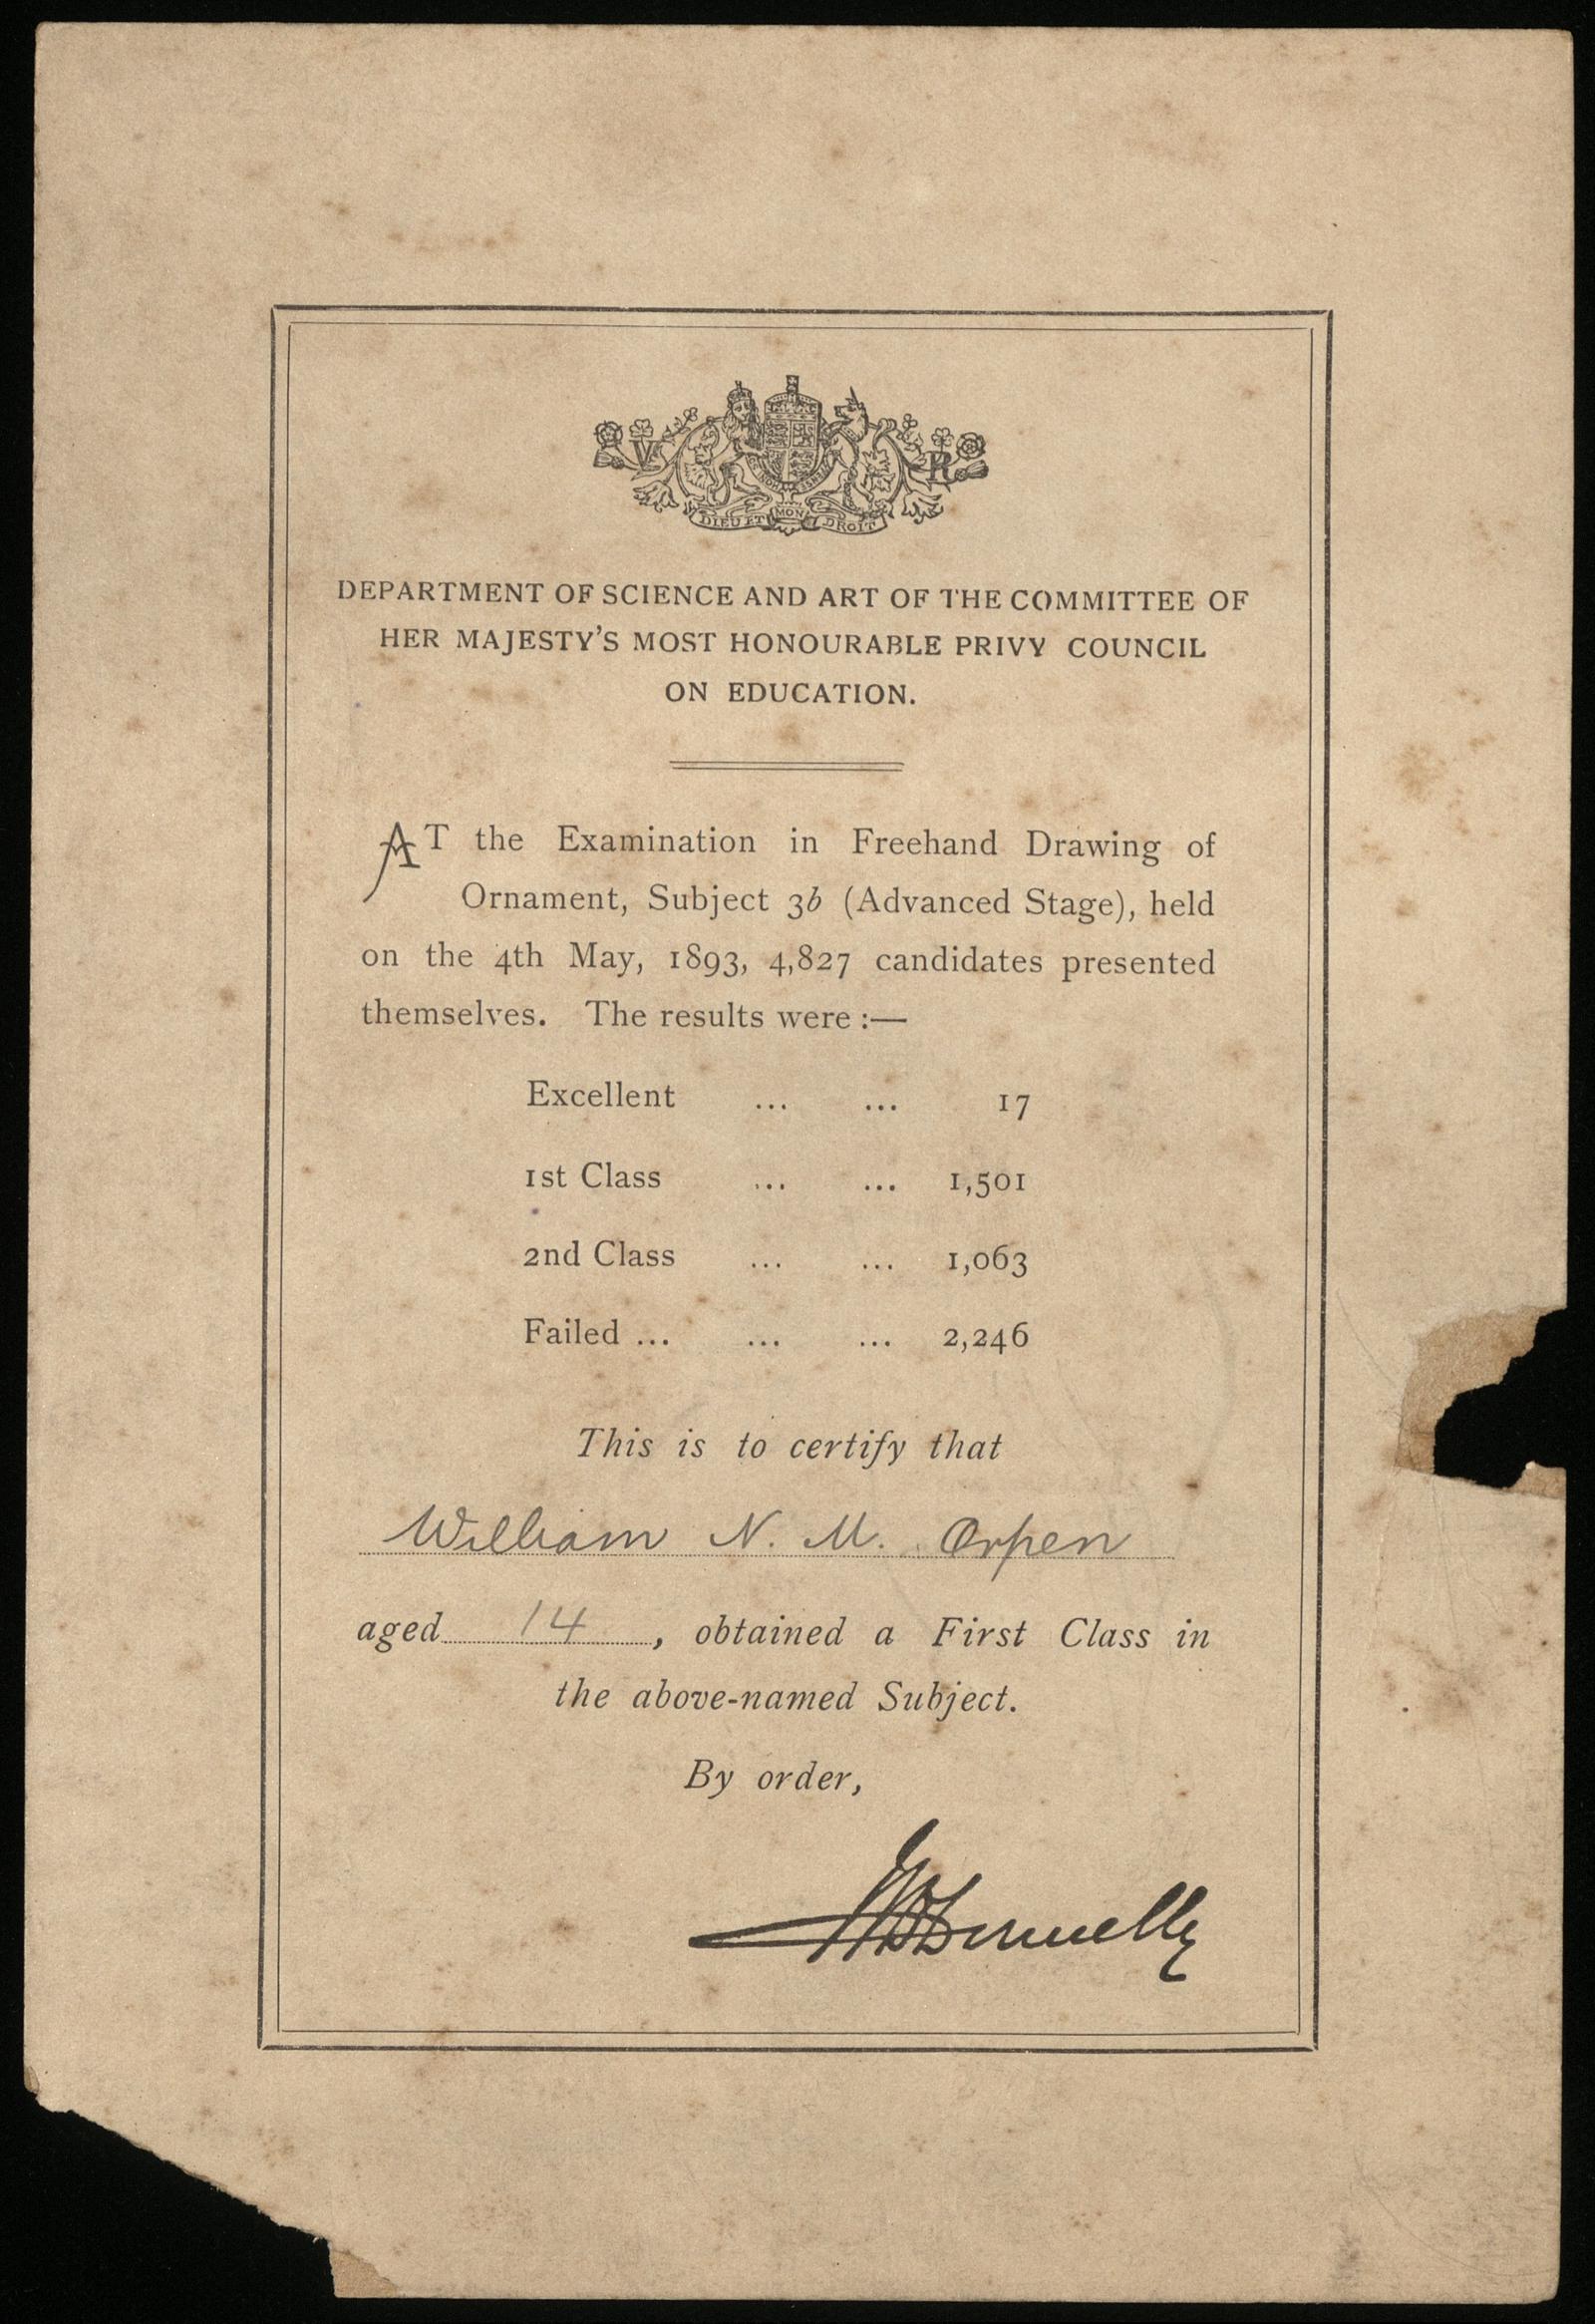 V R
DIEU ET MON DROIT
DEPARTMENT OF SCIENCE AND ART OF THE COMMITTEE OF
HER MAJESTY'S MOST HONOURABLE PRIVY COUNCIL
ON EDUCATION.
AT the Examination in Freehand Drawing of
Ornament, Subject 3b (Advanced Stage), held
on the 4th May, 1893, 4,827 candidates presented
themselves. The results were :—
Excellent ... ... 17
1st Class ... ... 1,501
2nd Class ... ... 1,063
Failed ... ... ... 2,246
This is to certify that
William N. M. Orpen
aged 14, obtained a First Class in
the above-named Subject.
By order,
Donnelly